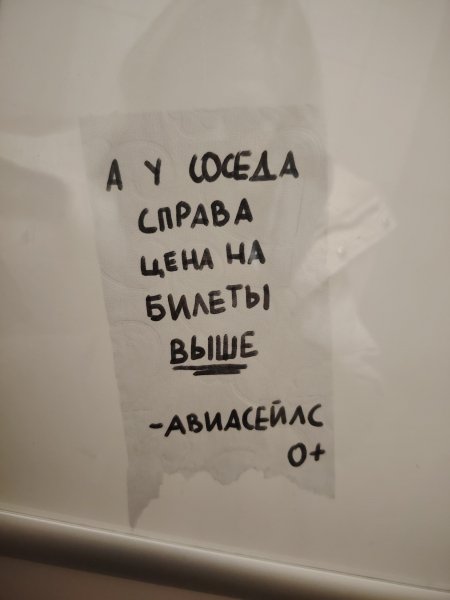 А У СОСЕДА
СПРАВА
ЦЕНА НА
БИЛЕТЫ
ВЫШЕ
-АВИАСЕЙЛС
0+